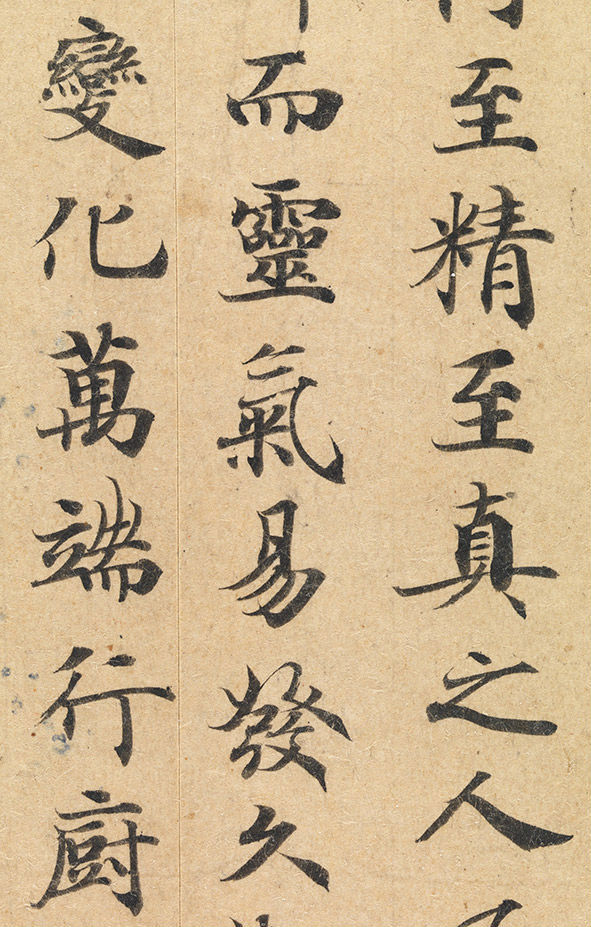 至精至真之人
而靈氣易發久
變化萬端行廚